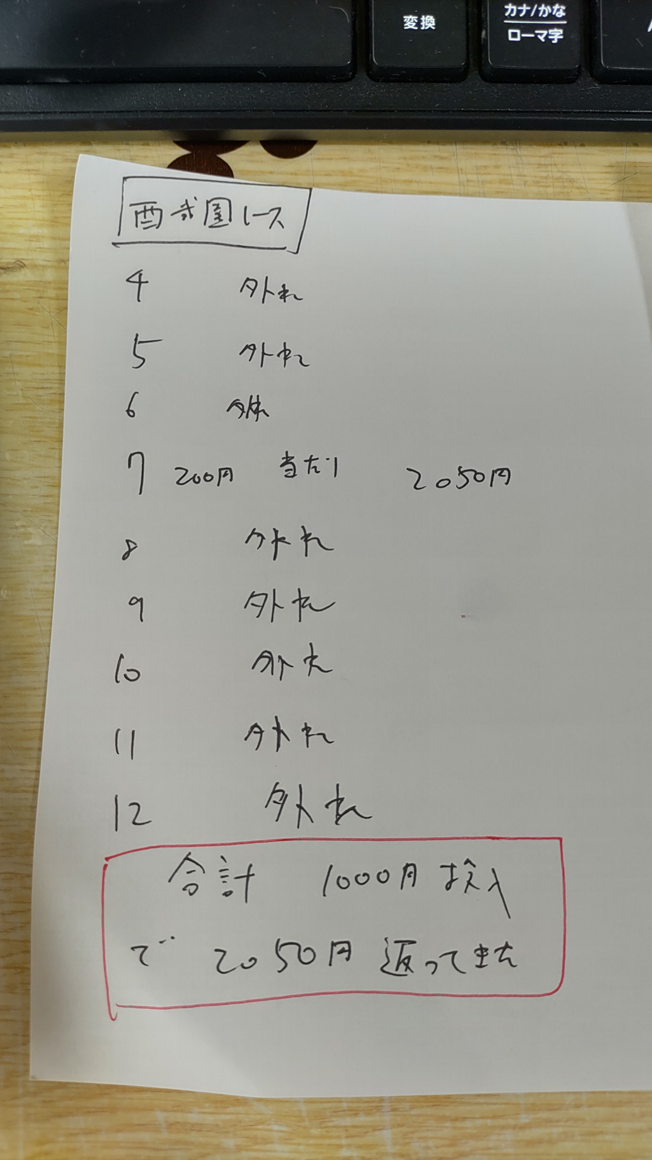 変換
カナ/かな
ローマ字
西武園レース
4 外れ
5 外れ
6 外れ
7 200円 当たり 2050円
8 外れ
9 外れ
10 外れ
11 外れ
12 外れ
合計 1000円投入
で 2050円 返ってきた